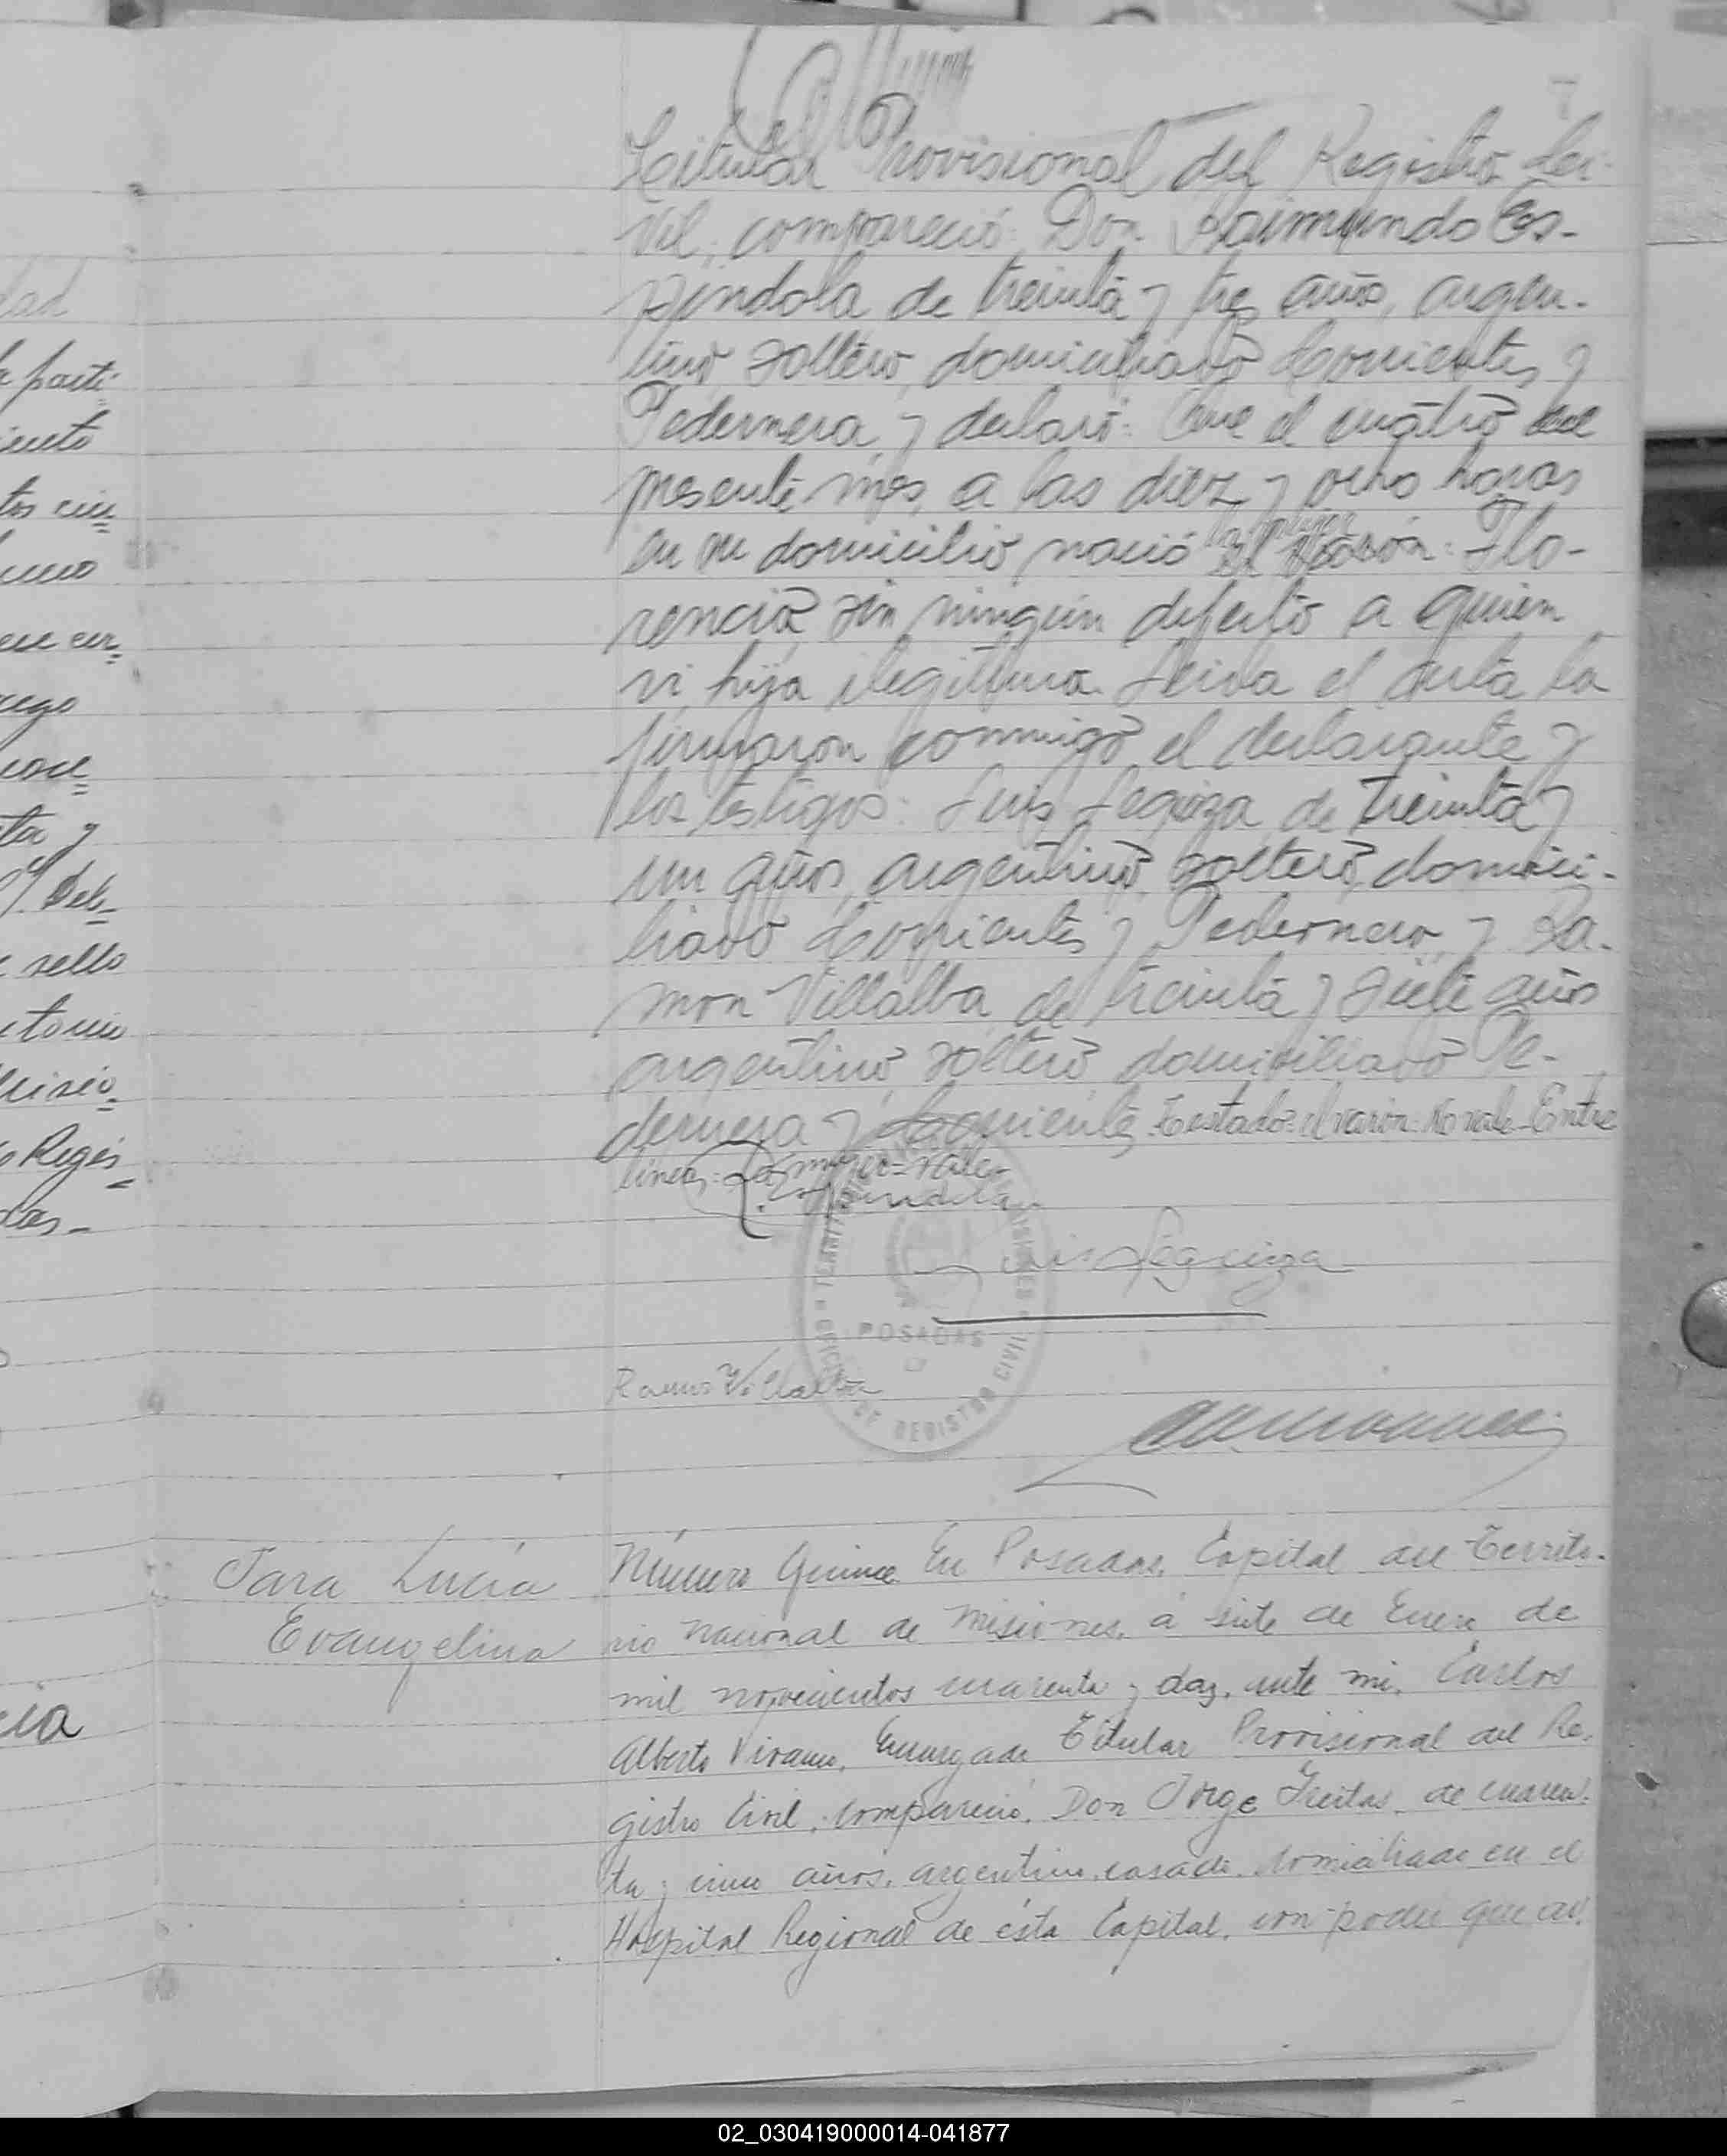 Titular Provisional del Registro Ci-
vil, compareció: Don Raimundo Es-
píndola de treinta y tres años, argen-
tino, soltero, domiciliado Corrientes y
Pedernera, y declaró: Que el cuatro del
presente mes, a las diez y ocho horas
en su domicilio, nació el varón: Flo-
rencia, sin ningún defecto a quien
vi, hija ilegítima. Leída el acta la
firmaron conmigo el declarante y
los testigos: Luis Leguiza, de treinta y
un años, argentino, soltero, domici-
liado Corrientes y Pedernera, y Ra-
mon Villalba, de treinta y siete años
argentino, soltero domiciliado Pe-
dernera y Corrientes. Testado: el varón: No vale-Entre
líneas: vale-
R. Espindola
Luis Leguiza
TERRITORIO MISIONES
POSADAS
OFICINA DE REGISTRO CIVIL
Ramon Villalba
Jara Lucía
Evangelina
Número Quince En Posadas, Capital del Territo-
rio Nacional de Misiones, á siete de Enero de
mil novecientos cuarenta y dos, ante mi, Carlos
Alberto Encargado Titular Provisional del Re-
gistro Civil, compareció, Don Jorge Freitas, de cuaren-
ta y cinco años, argentino, casado, domiciliado en el
Hospital Regional de ésta Capital, con poder que
dad
parti-
iento
tos
rego
ta y
Del-
sello
Regis
cia
02_030419000014-041877